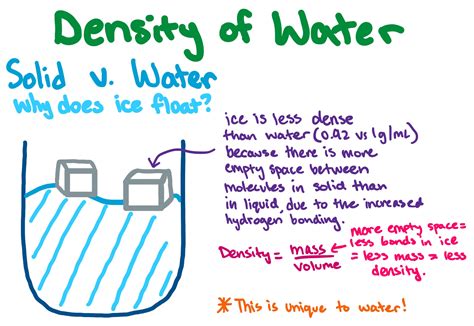 Density of Water
Solid v. Water
Why does ice float?
ice is less dense
than water (0.92 vs 1g/mL)
because there is more
empty space between
molecules in solid than
in liquid, due to the increased
hydrogen bonding.
Density = mass
volume
more empty space =
less bonds in ice
= less mass = less
density.
* This is unique to water!